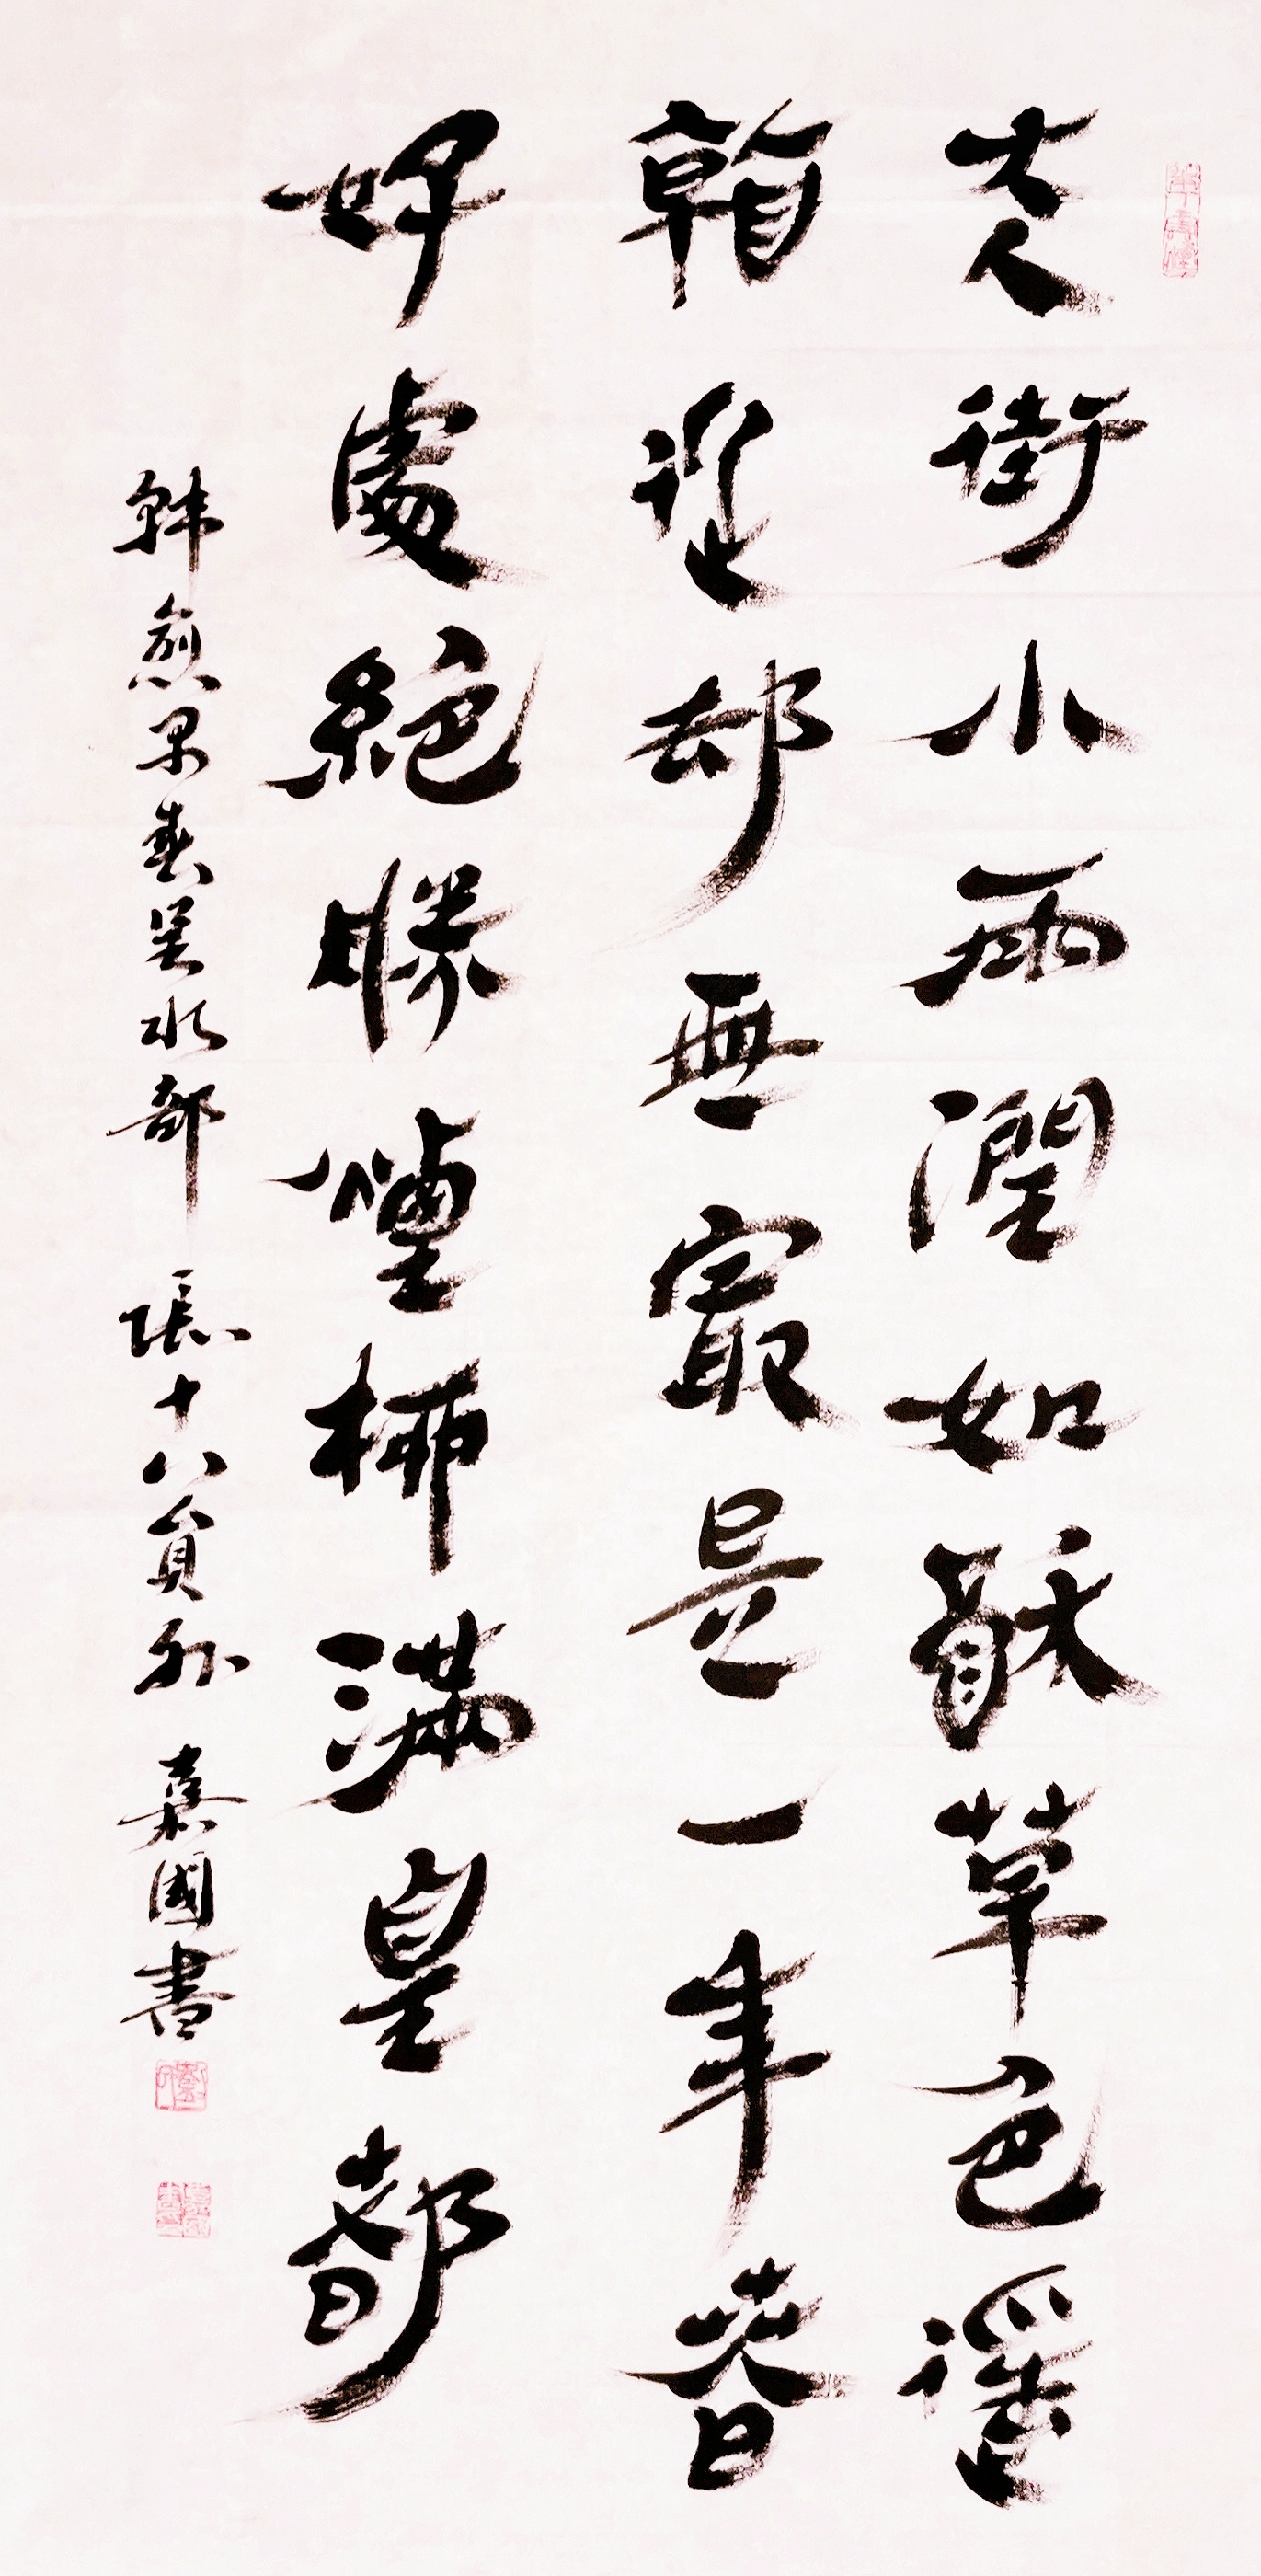 天街小雨潤如酥草色遥
看近却無最是一年春
好處絕勝煙柳滿皇都
韓愈早春呈水部張十八員外 嘉國書